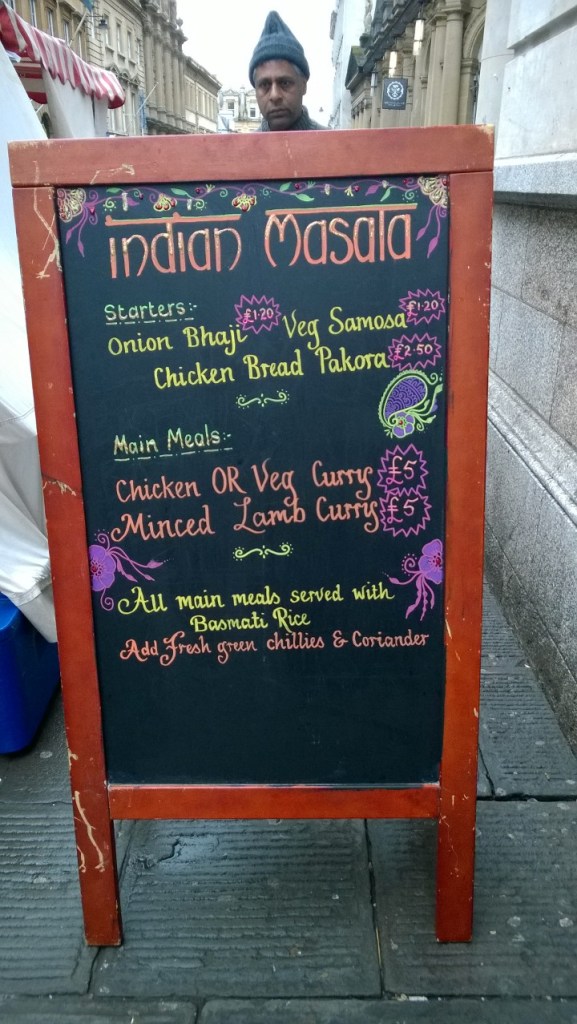 Indian Masala
Starters:-
Onion Bhaji £1.20 Veg Samosa £1.20
Chicken Bread Pakora £2.50
Main Meals:-
Chicken OR Veg Curry £5
Minced Lamb Curry £5
All main meals served with
Basmati Rice
Add Fresh green chillies & Coriander